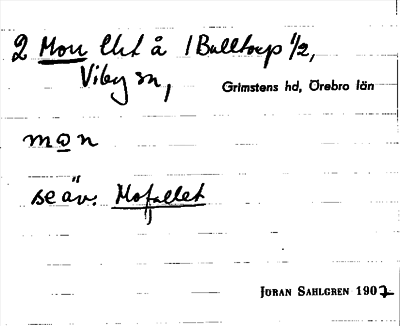 2 Mon Lht å /Bulltorp 1/2,
Viby sn,
Grimstens hd, Örebro län
mon
se äv. Mofallet
JÖRAN SAHLGREN 1907